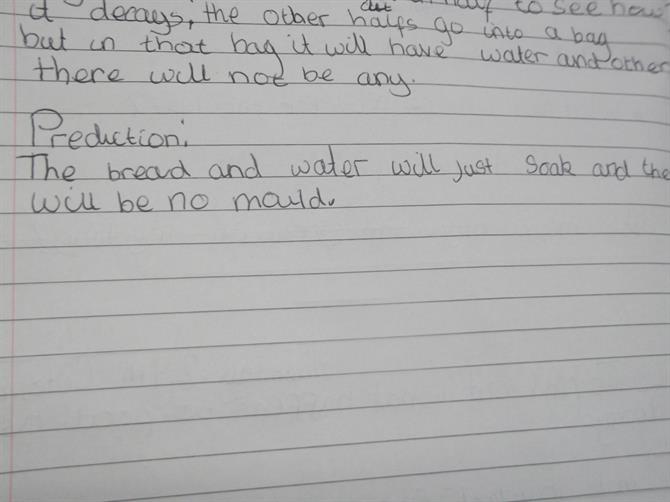 it decays, the other halfs go into a bag
but in that bag it will have water and other
there will not be any.
Prediction:
The bread and water will just soak and the
will be no mould.